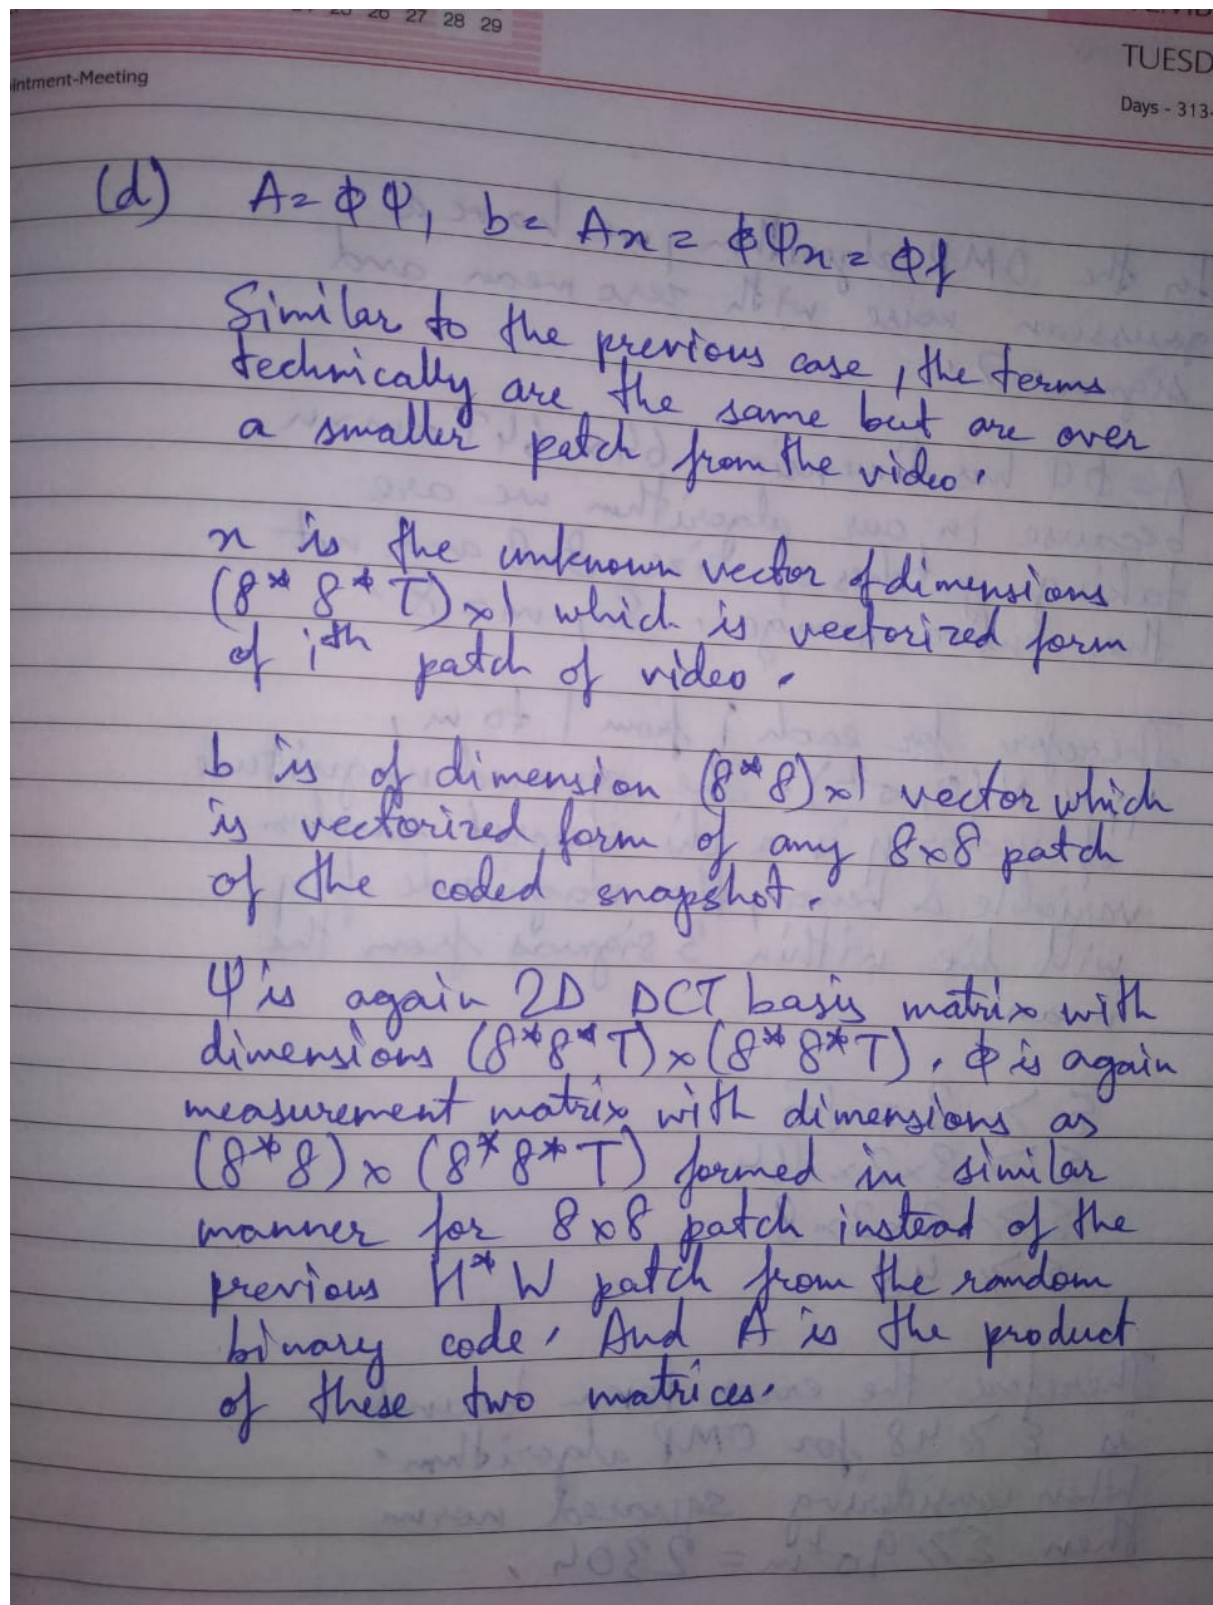 25 26 27 28 29
TUESD
intment-Meeting
Days - 313-
(d) A = ϕΨ, b = Ax = ϕΨx = ϕf
Similar to the previous case, the terms
technically are the same but are over
a smaller patch from the video.
x is the unknown vector of dimensions
(8*8*T)×1 which is vectorized form
of ith patch of video.
b is of dimension (8*8)×1 vector which
is vectorized form of any 8×8 patch
of the coded snapshot.
Ψ is again 2D DCT basis matrix with
dimensions (8*8*T)×(8*8*T). ϕ is again
measurement matrix with dimensions as
(8*8)×(8*8*T) formed in similar
manner for 8×8 patch instead of the
previous H*W patch from the random
binary code. And A is the product
of these two matrices.